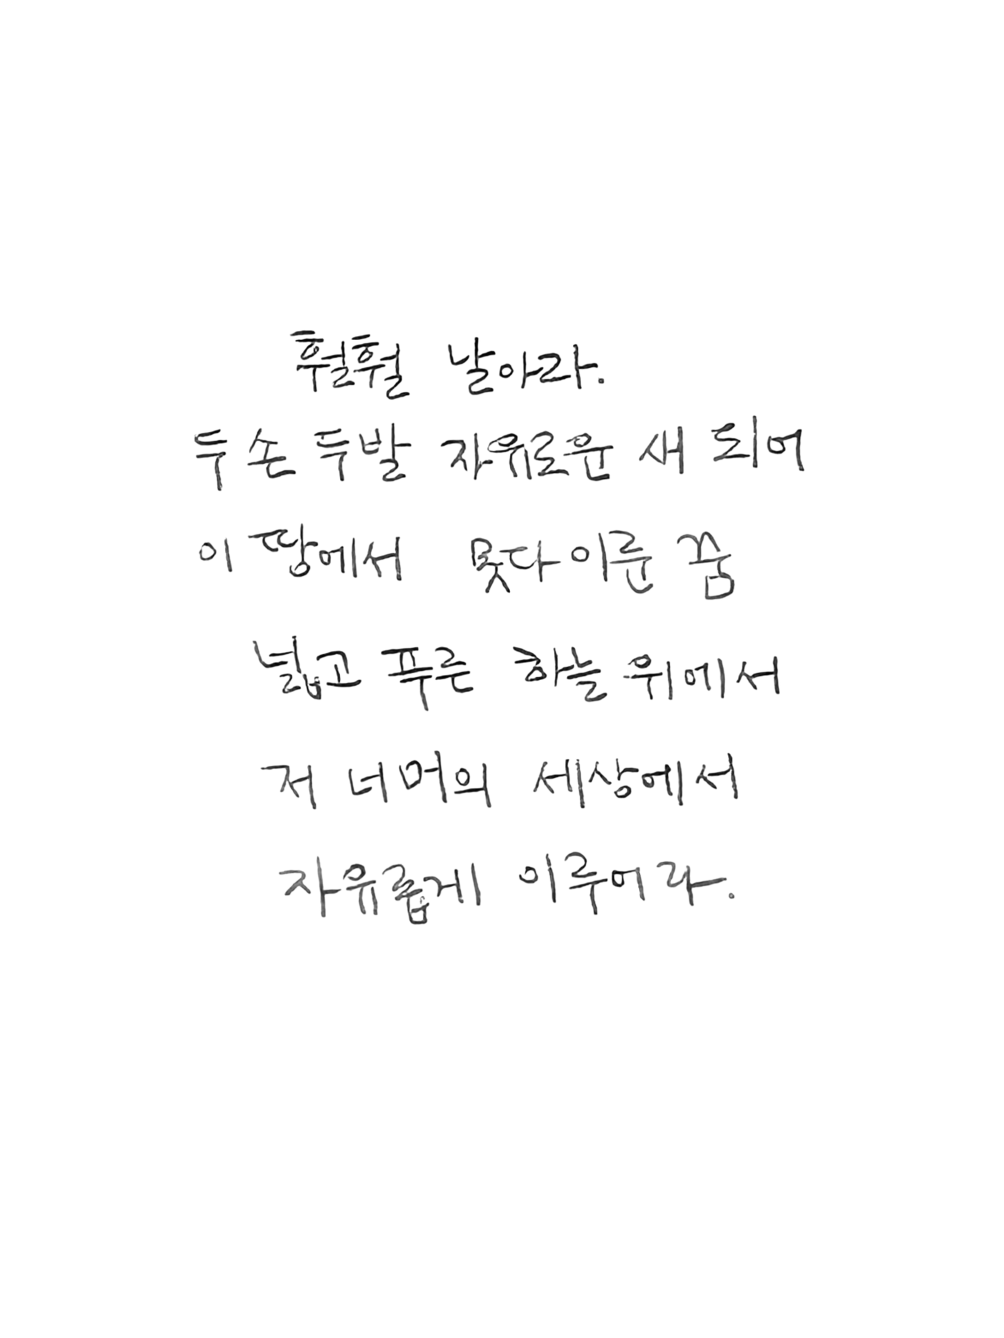 훨훨 날아라.
두 손 두발 자유로운 새 되어
이 땅에서 못다이룬 꿈
넓고 푸른 하늘 위에서
저 너머의 세상에서
자유롭게 이루어라.